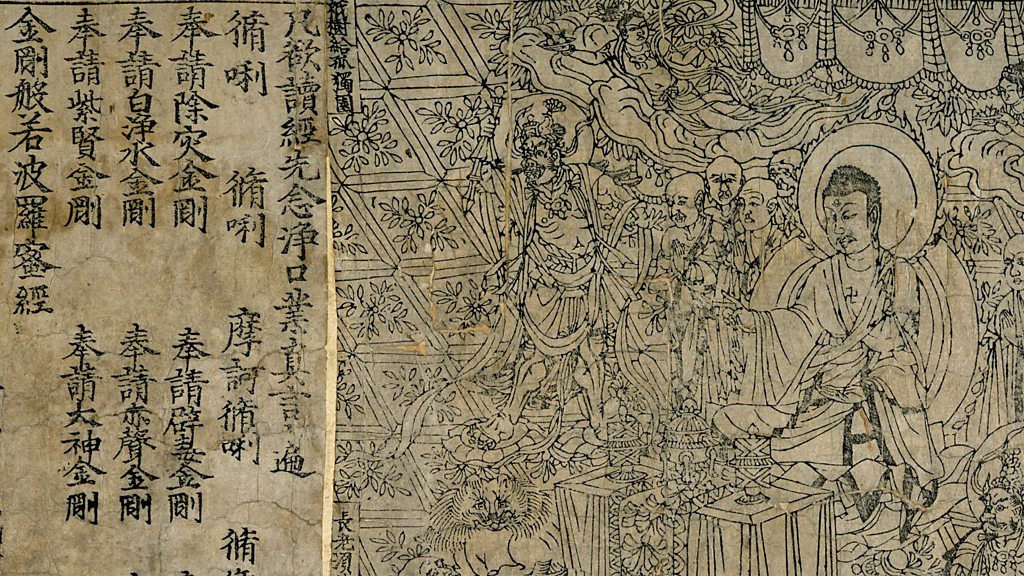 樹給孤獨園
長老須
凡欲讀經先念净口業真言遍
脩唎 脩唎 摩訶脩唎 脩
奉請除灾金剛 奉請辟毒金剛
奉請白净水金剛 奉請赤聲金剛
奉請紫賢金剛 奉請大神金剛
金剛般若波羅蜜經